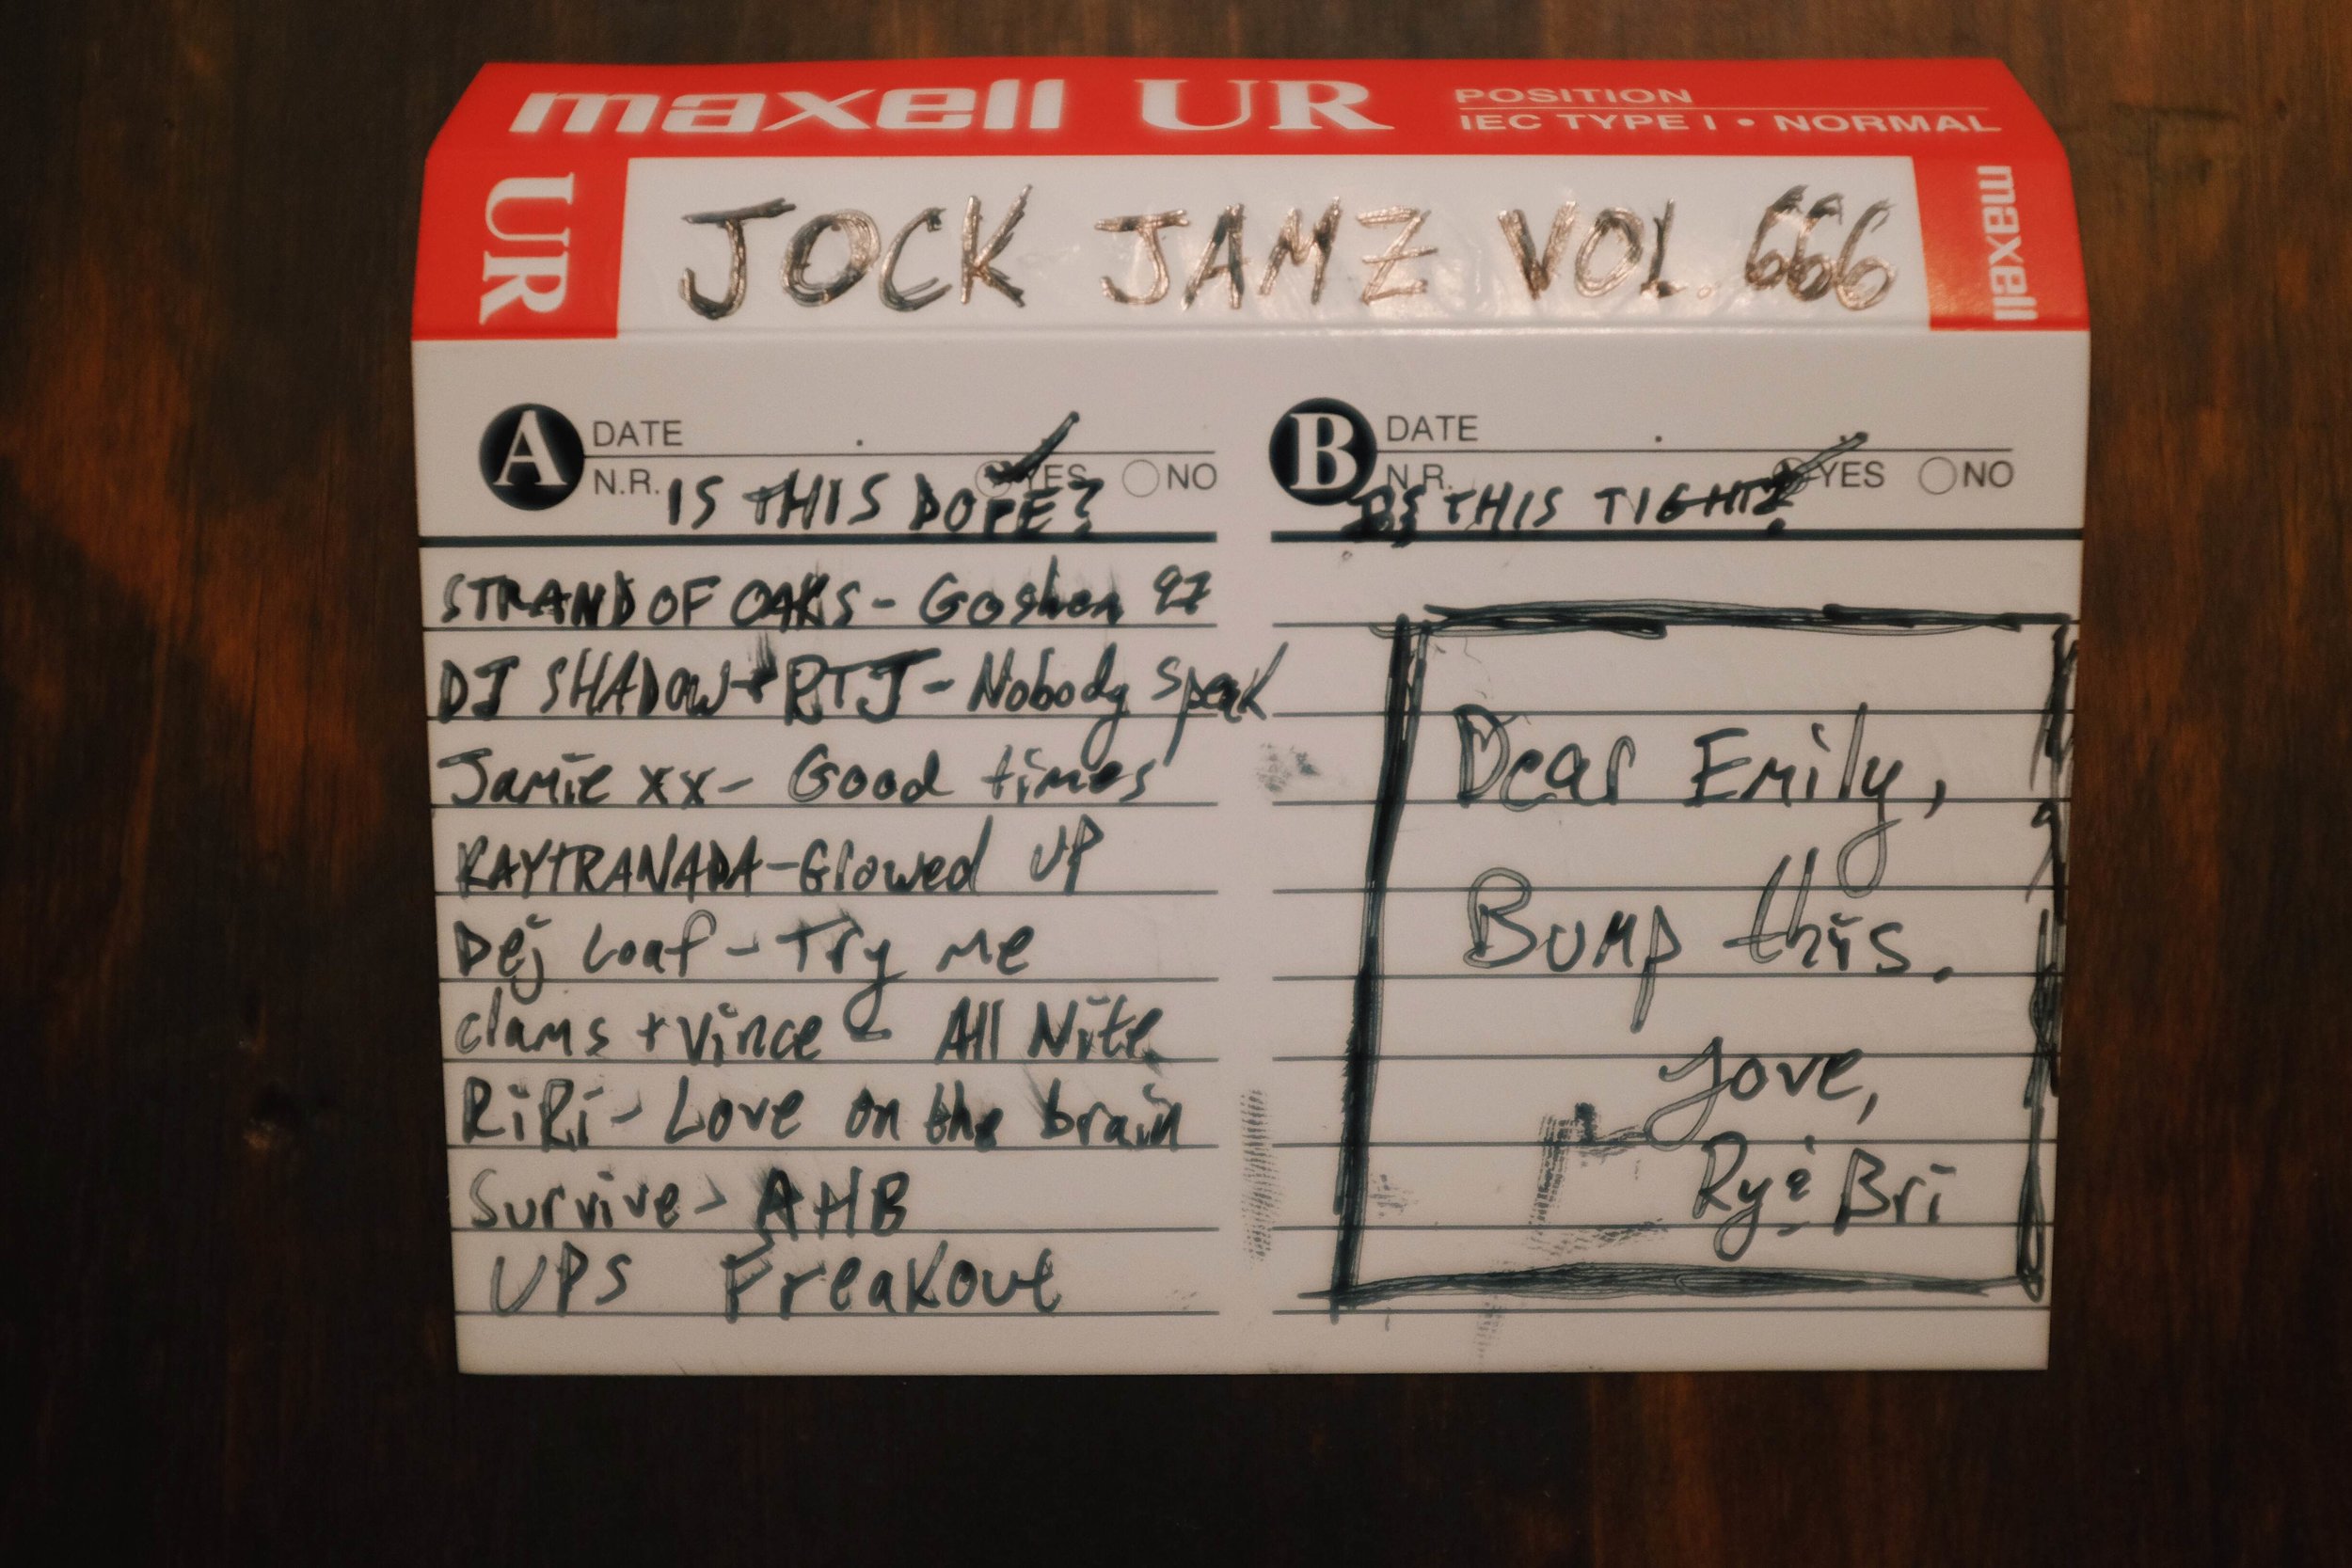 maxell UR POSITION
IEC TYPE I • NORMAL
UR JOCK JAMZ VOL. 666 maxell
A DATE
N.R. YES NO
IS THIS DOPE?
STRAND OF OAKS - Goshen 97
DJ SHADOW + RTJ - Nobody Speak
Jamie xx - Good times
KAYTRANADA - Glowed UP
Dej Loaf - Try me
clams + Vince - All Nite
RiRi - Love on the brain
Survive - AHB
UPS Freakout
B DATE
N.R. YES NO
IS THIS TIGHT?
Dear Emily,
Bump this.
Love,
Ry & Bri